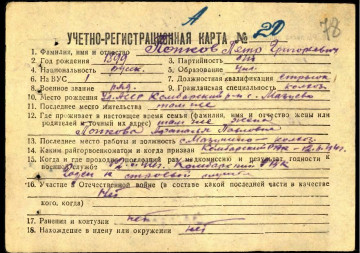 А
78
УЧЕТНО-РЕГИСТРАЦИОННАЯ КАРТА № 20
1. Фамилия, имя и отчество Попков Петр Григорьевич
2. Год рождения 1899 3. Партийность б/п
4. Национальность русск. 5. Образование
6. На ВУС 1 7. Должностная квалификация стрелок
8. Военное звание ряд. 9. Гражданская специальность колхоз
10. Место рождения Камбарский р-н с.
11. Последнее место жительства там же
12. Где проживает в настоящее время семья (фамилия, имя и отчество жены или родителей и точный их адрес) там же жена
Попкова Наталья Павловна
13. Последнее место работы и должность колхоз
14. Каким райгорвоенкомат и когда призван Камбарский РВК
15. Когда и где проходил последний раз медкомиссию и результат годности к военной службе Камбарский РВК
Годен к строевой службе
16. Участие в Отечественной войне (в составе какой последней части и в качестве кого, когда) Нет
17. Ранения и контузии нет
18. Нахождение в плену или окружении нет